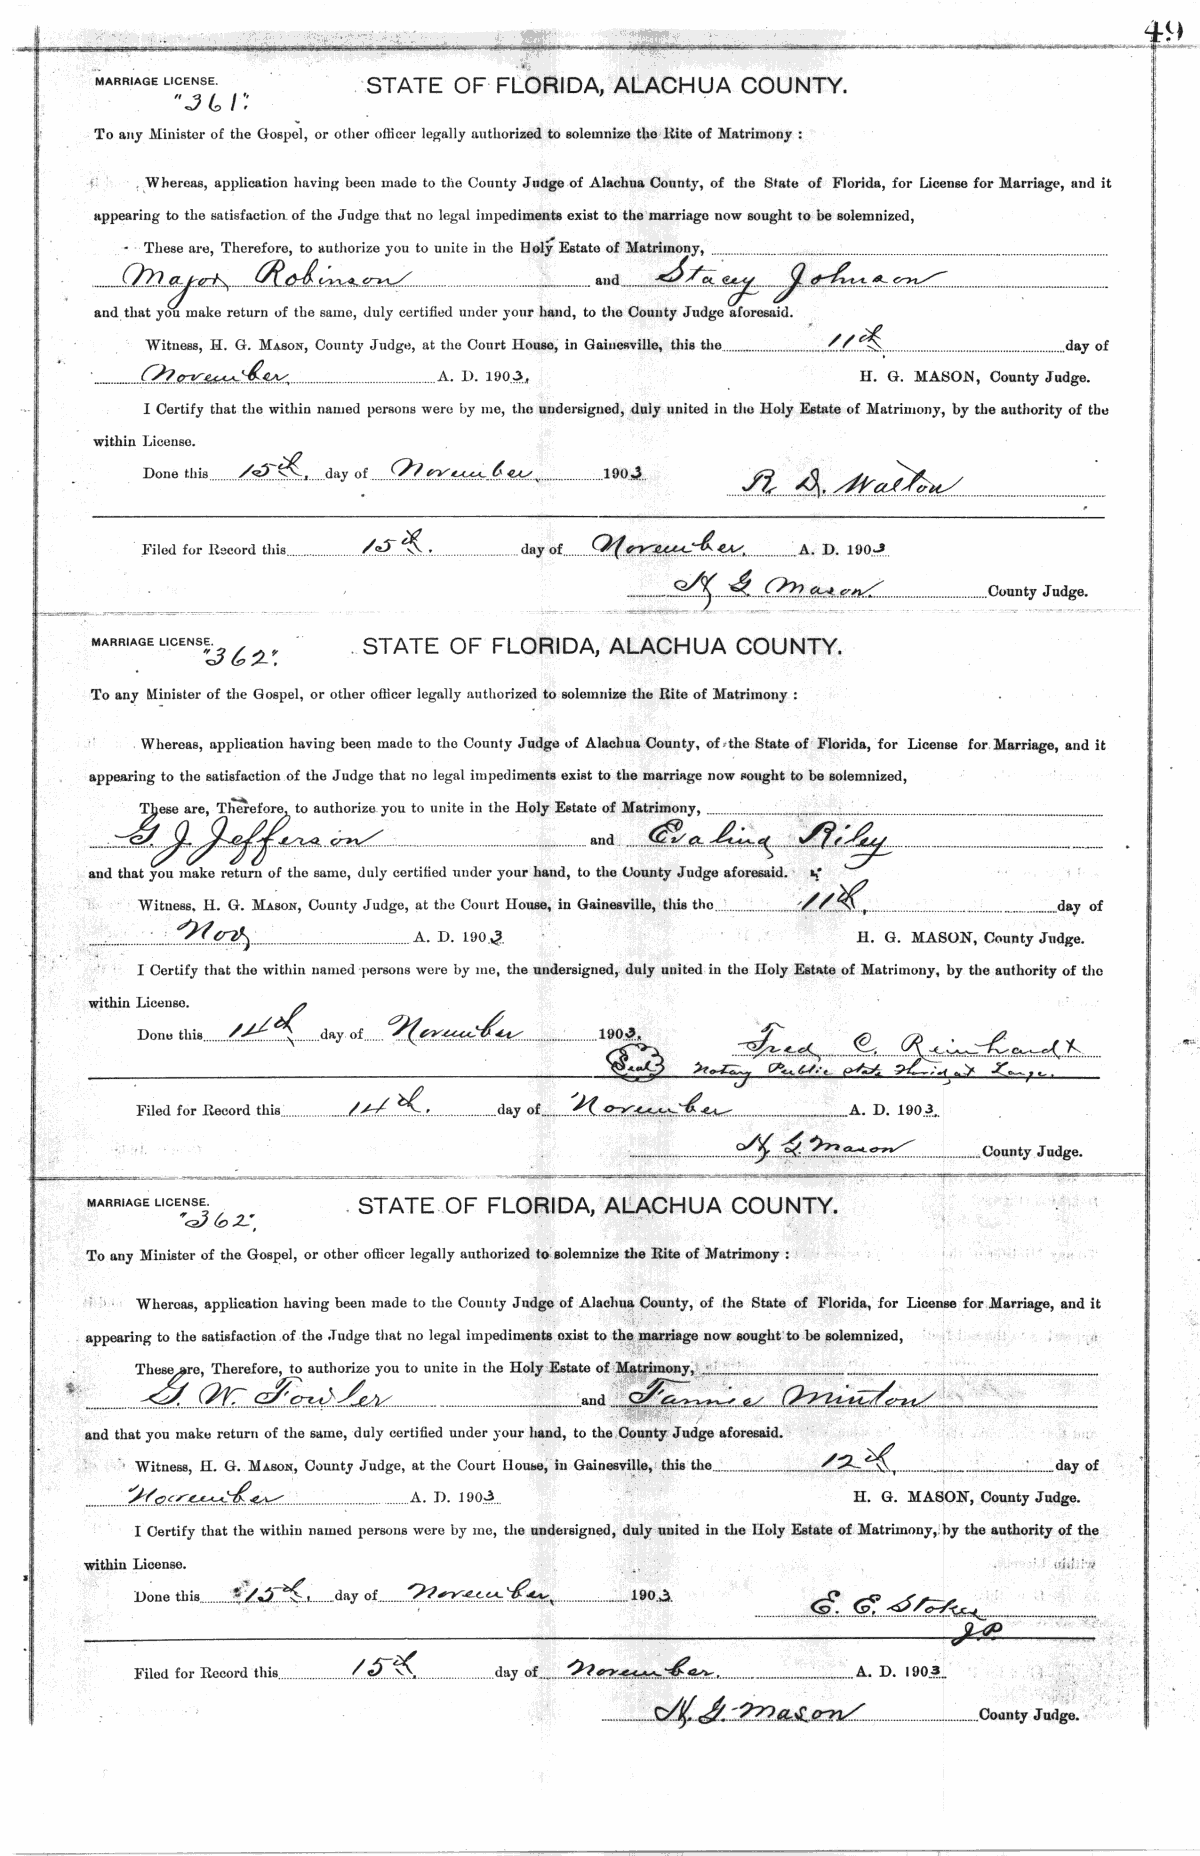 49
MARRIAGE LICENSE. STATE OF FLORIDA, ALACHUA COUNTY.
"361".
To any Minister of the Gospel, or other officer legally authorized to solemnize the Rite of Matrimony :
Whereas, application having been made to the County Judge of Alachua County, of the State of Florida, for License for Marriage, and it
appearing to the satisfaction of the Judge that no legal impediments exist to the marriage now sought to be solemnized,
These are, Therefore, to authorize you to unite in the Holy Estate of Matrimony,
Major Robinson and Stacey Johnson
and that you make return of the same, duly certified under your hand, to the County Judge aforesaid.
Witness, H. G. MASON, County Judge, at the Court House, in Gainesville, this the 11th day of
November A. D. 1903. H. G. MASON, County Judge.
I Certify that the within named persons were by me, the undersigned, duly united in the Holy Estate of Matrimony, by the authority of the
within License.
Done this 15th. day of November 1903 R. D. Walton
Filed for Record this 15th. day of November. A. D. 1903
H G Mason. County Judge.
MARRIAGE LICENSE. STATE OF FLORIDA, ALACHUA COUNTY.
"362".
To any Minister of the Gospel, or other officer legally authorized to solemnize the Rite of Matrimony :
Whereas, application having been made to the County Judge of Alachua County, of the State of Florida, for License for Marriage, and it
appearing to the satisfaction of the Judge that no legal impediments exist to the marriage now sought to be solemnized,
These are, Therefore, to authorize you to unite in the Holy Estate of Matrimony,
G. J. Jefferson and Evalina Riley
and that you make return of the same, duly certified under your hand, to the County Judge aforesaid.
Witness, H. G. MASON, County Judge, at the Court House, in Gainesville, this the 11th, day of
Nov A. D. 1903. H. G. MASON, County Judge.
I Certify that the within named persons were by me, the undersigned, duly united in the Holy Estate of Matrimony, by the authority of the
within License.
Done this 14th day of November 1903. Fred C. Reinhardt
Seal Notary Public State Florida at Large.
Filed for Record this 14th. day of November A. D. 1903.
H. G. Mason County Judge.
MARRIAGE LICENSE. STATE OF FLORIDA, ALACHUA COUNTY.
"362".
To any Minister of the Gospel, or other officer legally authorized to solemnize the Rite of Matrimony :
Whereas, application having been made to the County Judge of Alachua County, of the State of Florida, for License for Marriage, and it
appearing to the satisfaction of the Judge that no legal impediments exist to the marriage now sought to be solemnized,
These are, Therefore, to authorize you to unite in the Holy Estate of Matrimony,
G. W. Fowler and Fannie Minton
and that you make return of the same, duly certified under your hand, to the County Judge aforesaid.
Witness, H. G. MASON, County Judge, at the Court House, in Gainesville, this the 12th, day of
November A. D. 1903 H. G. MASON, County Judge.
I Certify that the within named persons were by me, the undersigned, duly united in the Holy Estate of Matrimony, by the authority of the
within License.
Done this 15th. day of November, 1903 E. E. Stokes
J.P.
Filed for Record this 15th. day of November. A. D. 1903
H. G. Mason County Judge.